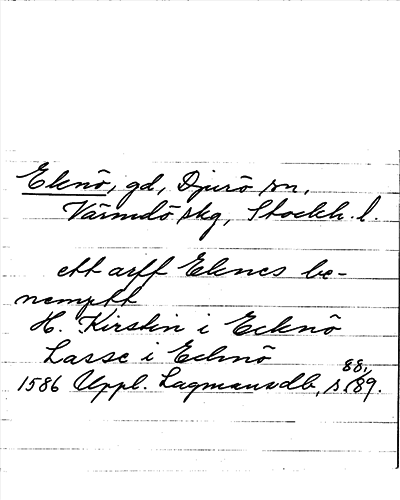 Eknö, gd, Djurö sn,
Värmdö skg, Stockh. l.
ett arff Eknes be-
nempt
H. Kirstin i Ecknö
Lasse i Ecknö
1586 Uppl. Lagmansdb, s. 88, 189.